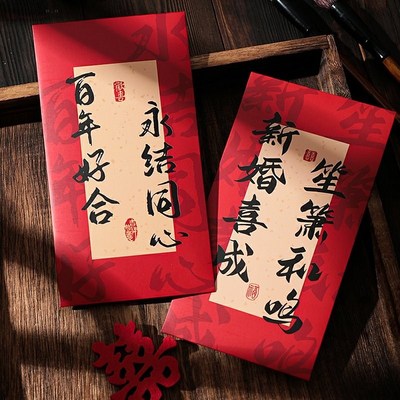 永结同心
百年好合
笙箫和鸣
新婚喜成